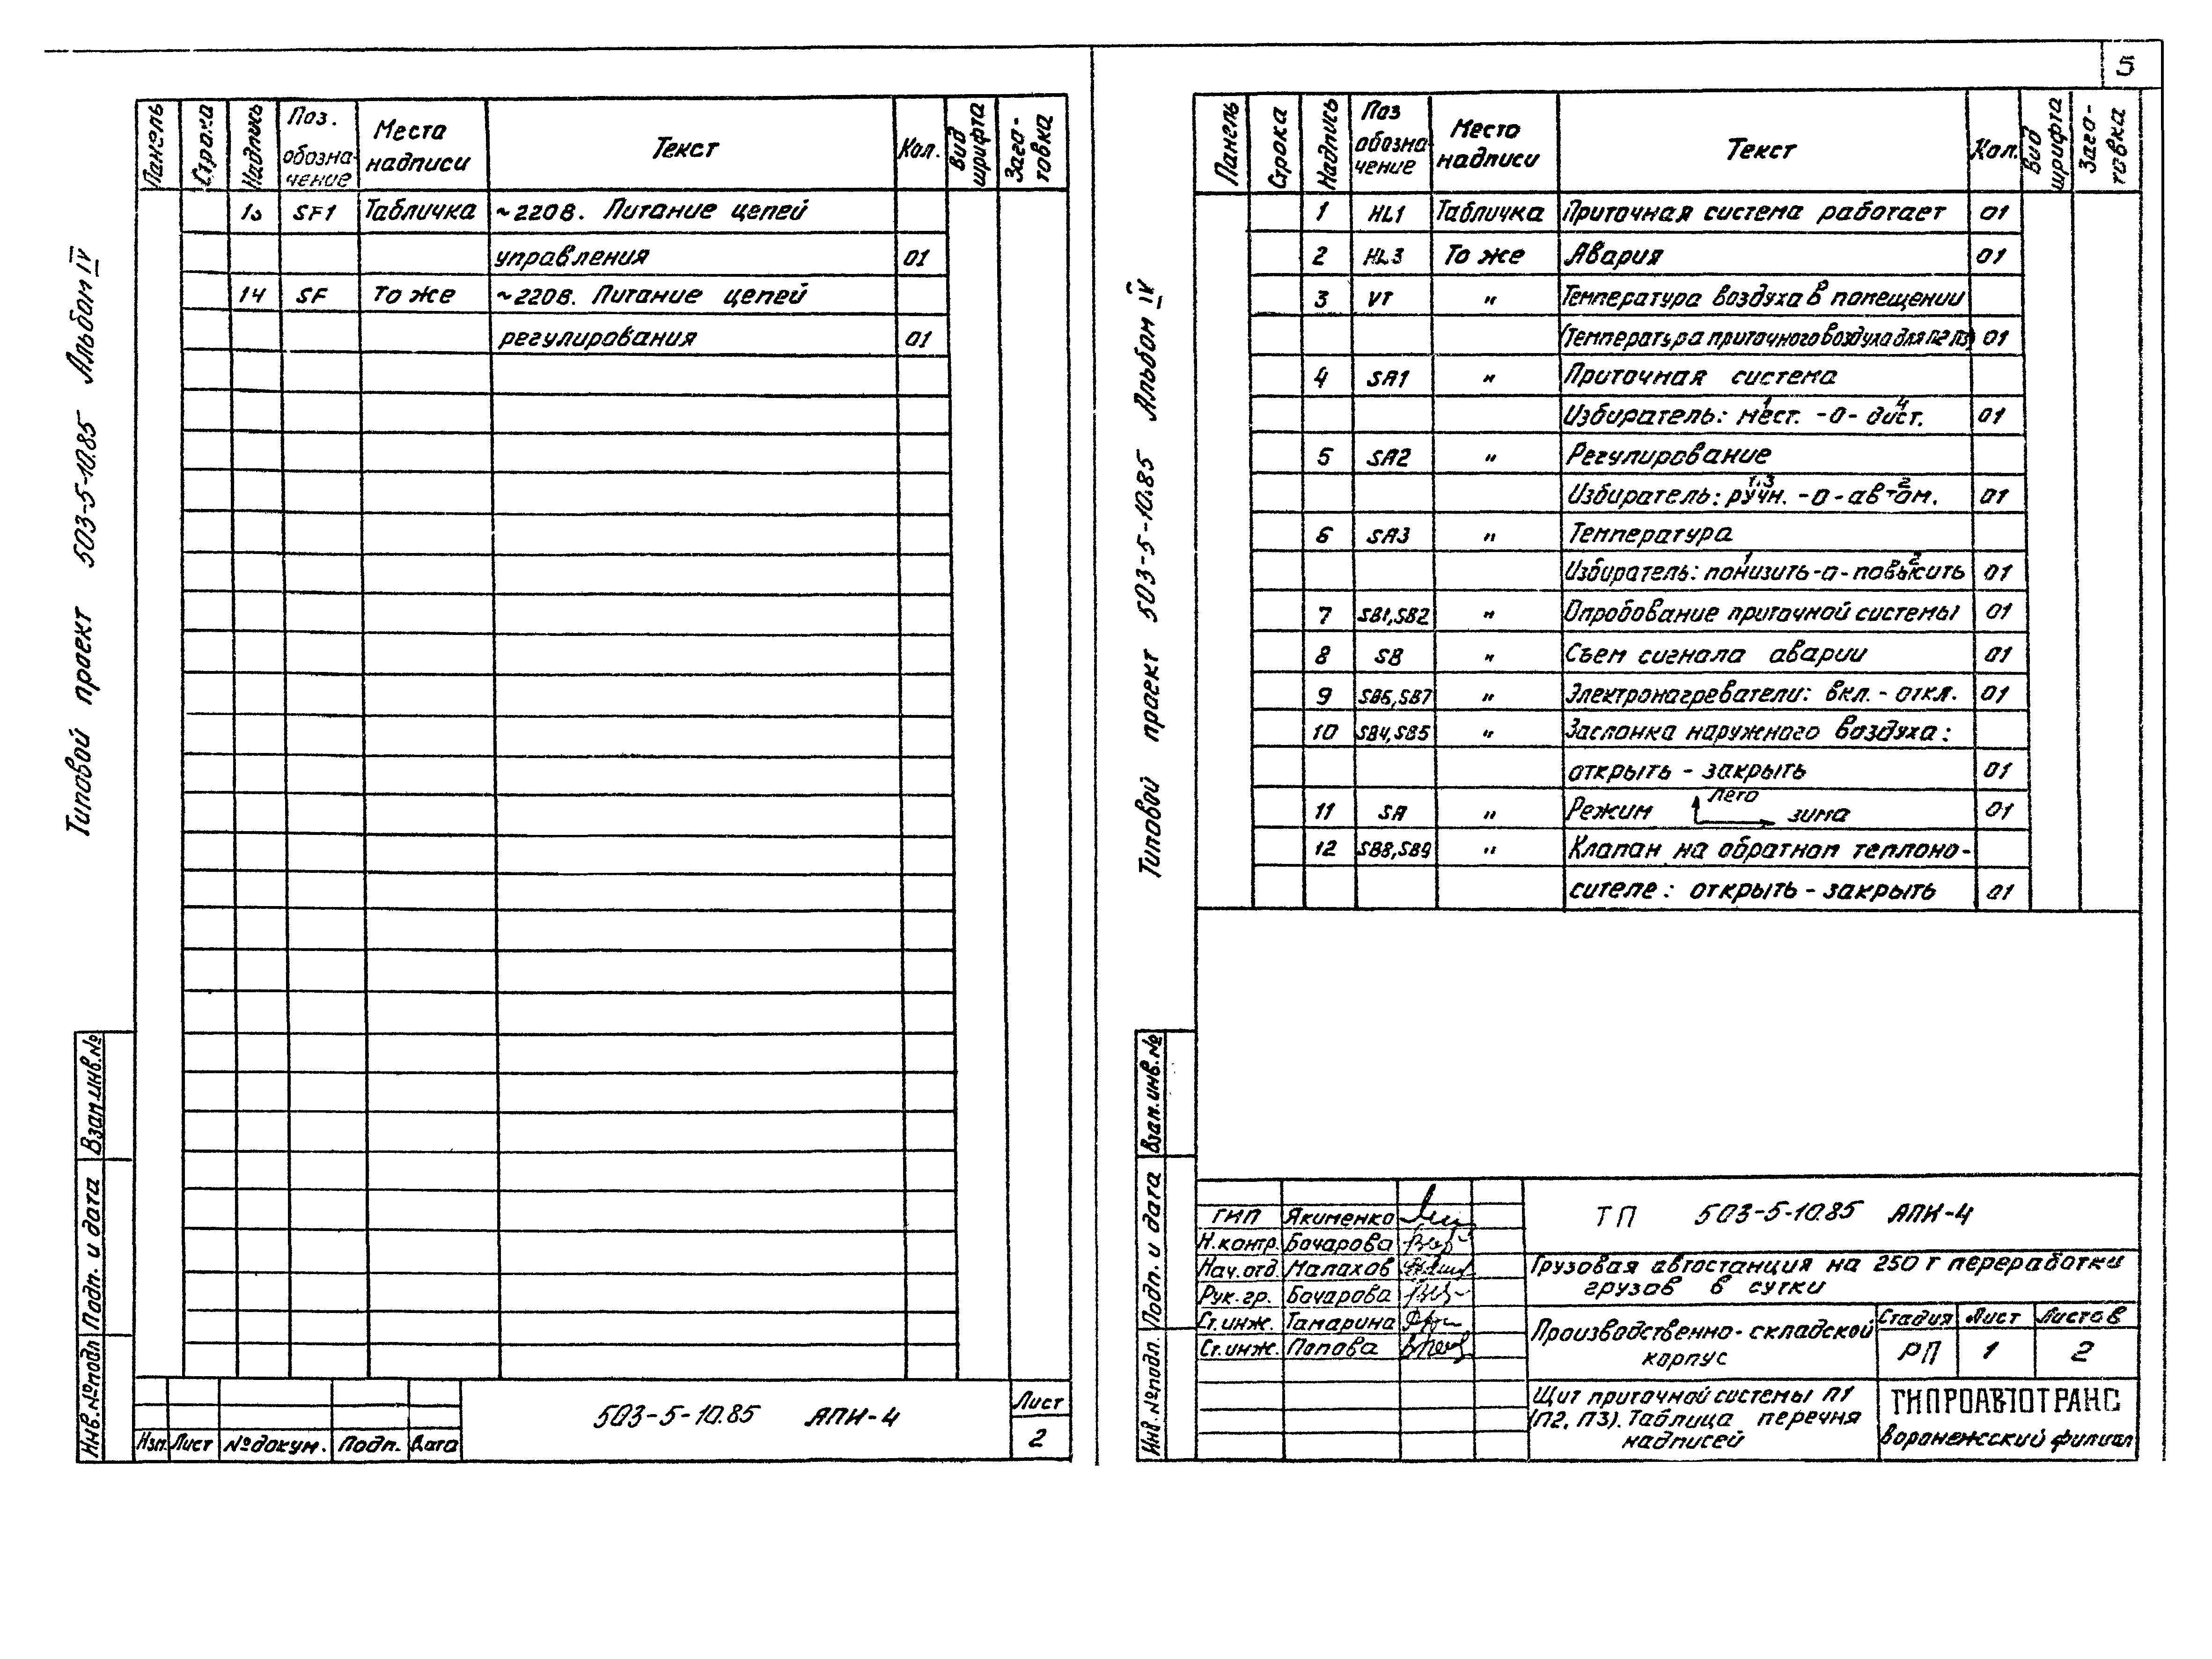 5
Типовой проект 503-5-10.85 Альбом IV
Панель Строка Надпись Поз. обозна-чение Место надписи Текст Кол. Вид шрифта Заго-товка
13 SF1 Табличка ~220В. Питание цепей
управления 01
14 SF То же ~220В. Питание цепей
регулирования 01
Взам.инв.№
Подп. и дата
Инв.№подл
Изм. Лист №докум. Подп. Дата
503-5-10.85 АПИ-4
Лист
2
Типовой проект 503-5-10.85 Альбом IV
Панель Строка Надпись Поз обозна-чение Место надписи Текст Кол. Вид шрифта Заго-товка
1 HL1 Табличка Приточная система работает 01
2 HL3 То же Авария 01
3 VT " Температура воздуха в помещении
(Температура приточного воздуха для П2 П3) 01
4 SA1 " Приточная система
1 4
Избиратель: мест. -0- дист. 01
5 SA2 " Регулирование
1,3 2
Избиратель: ручн. -0- автом. 01
6 SA3 " Температура
1 2
Избиратель: понизить-0-повысить 01
7 SB1,SB2 " Опробование приточной системы 01
8 SB " Съем сигнала аварии 01
9 SB6,SB7 " Электронагреватели: вкл. - откл. 01
10 SB4,SB5 " Заслонка наружного воздуха:
открыть - закрыть 01
11 SA " Режим лето зима 01
12 SB8,SB9 " Клапан на обратном теплоно-
сителе: открыть - закрыть 01
Взам.инв.№
Подп. и дата
Инв.№подл.
ТП 503-5-10.85 АПИ-4
ГИП Якименко
Н.контр. Бочарова
Нач.отд. Малахов
Рук.гр. Бочарова
Ст.инж. Тамарина
Ст.инж. Попова
Грузовая автостанция на 250 т переработки
грузов в сутки
Производственно-складской
корпус
Стадия Лист Листов
РП 1 2
Щит приточной системы П1
(П2, П3). Таблица перечня
надписей
ГИПРОАВТОТРАНС
Воронежский филиал